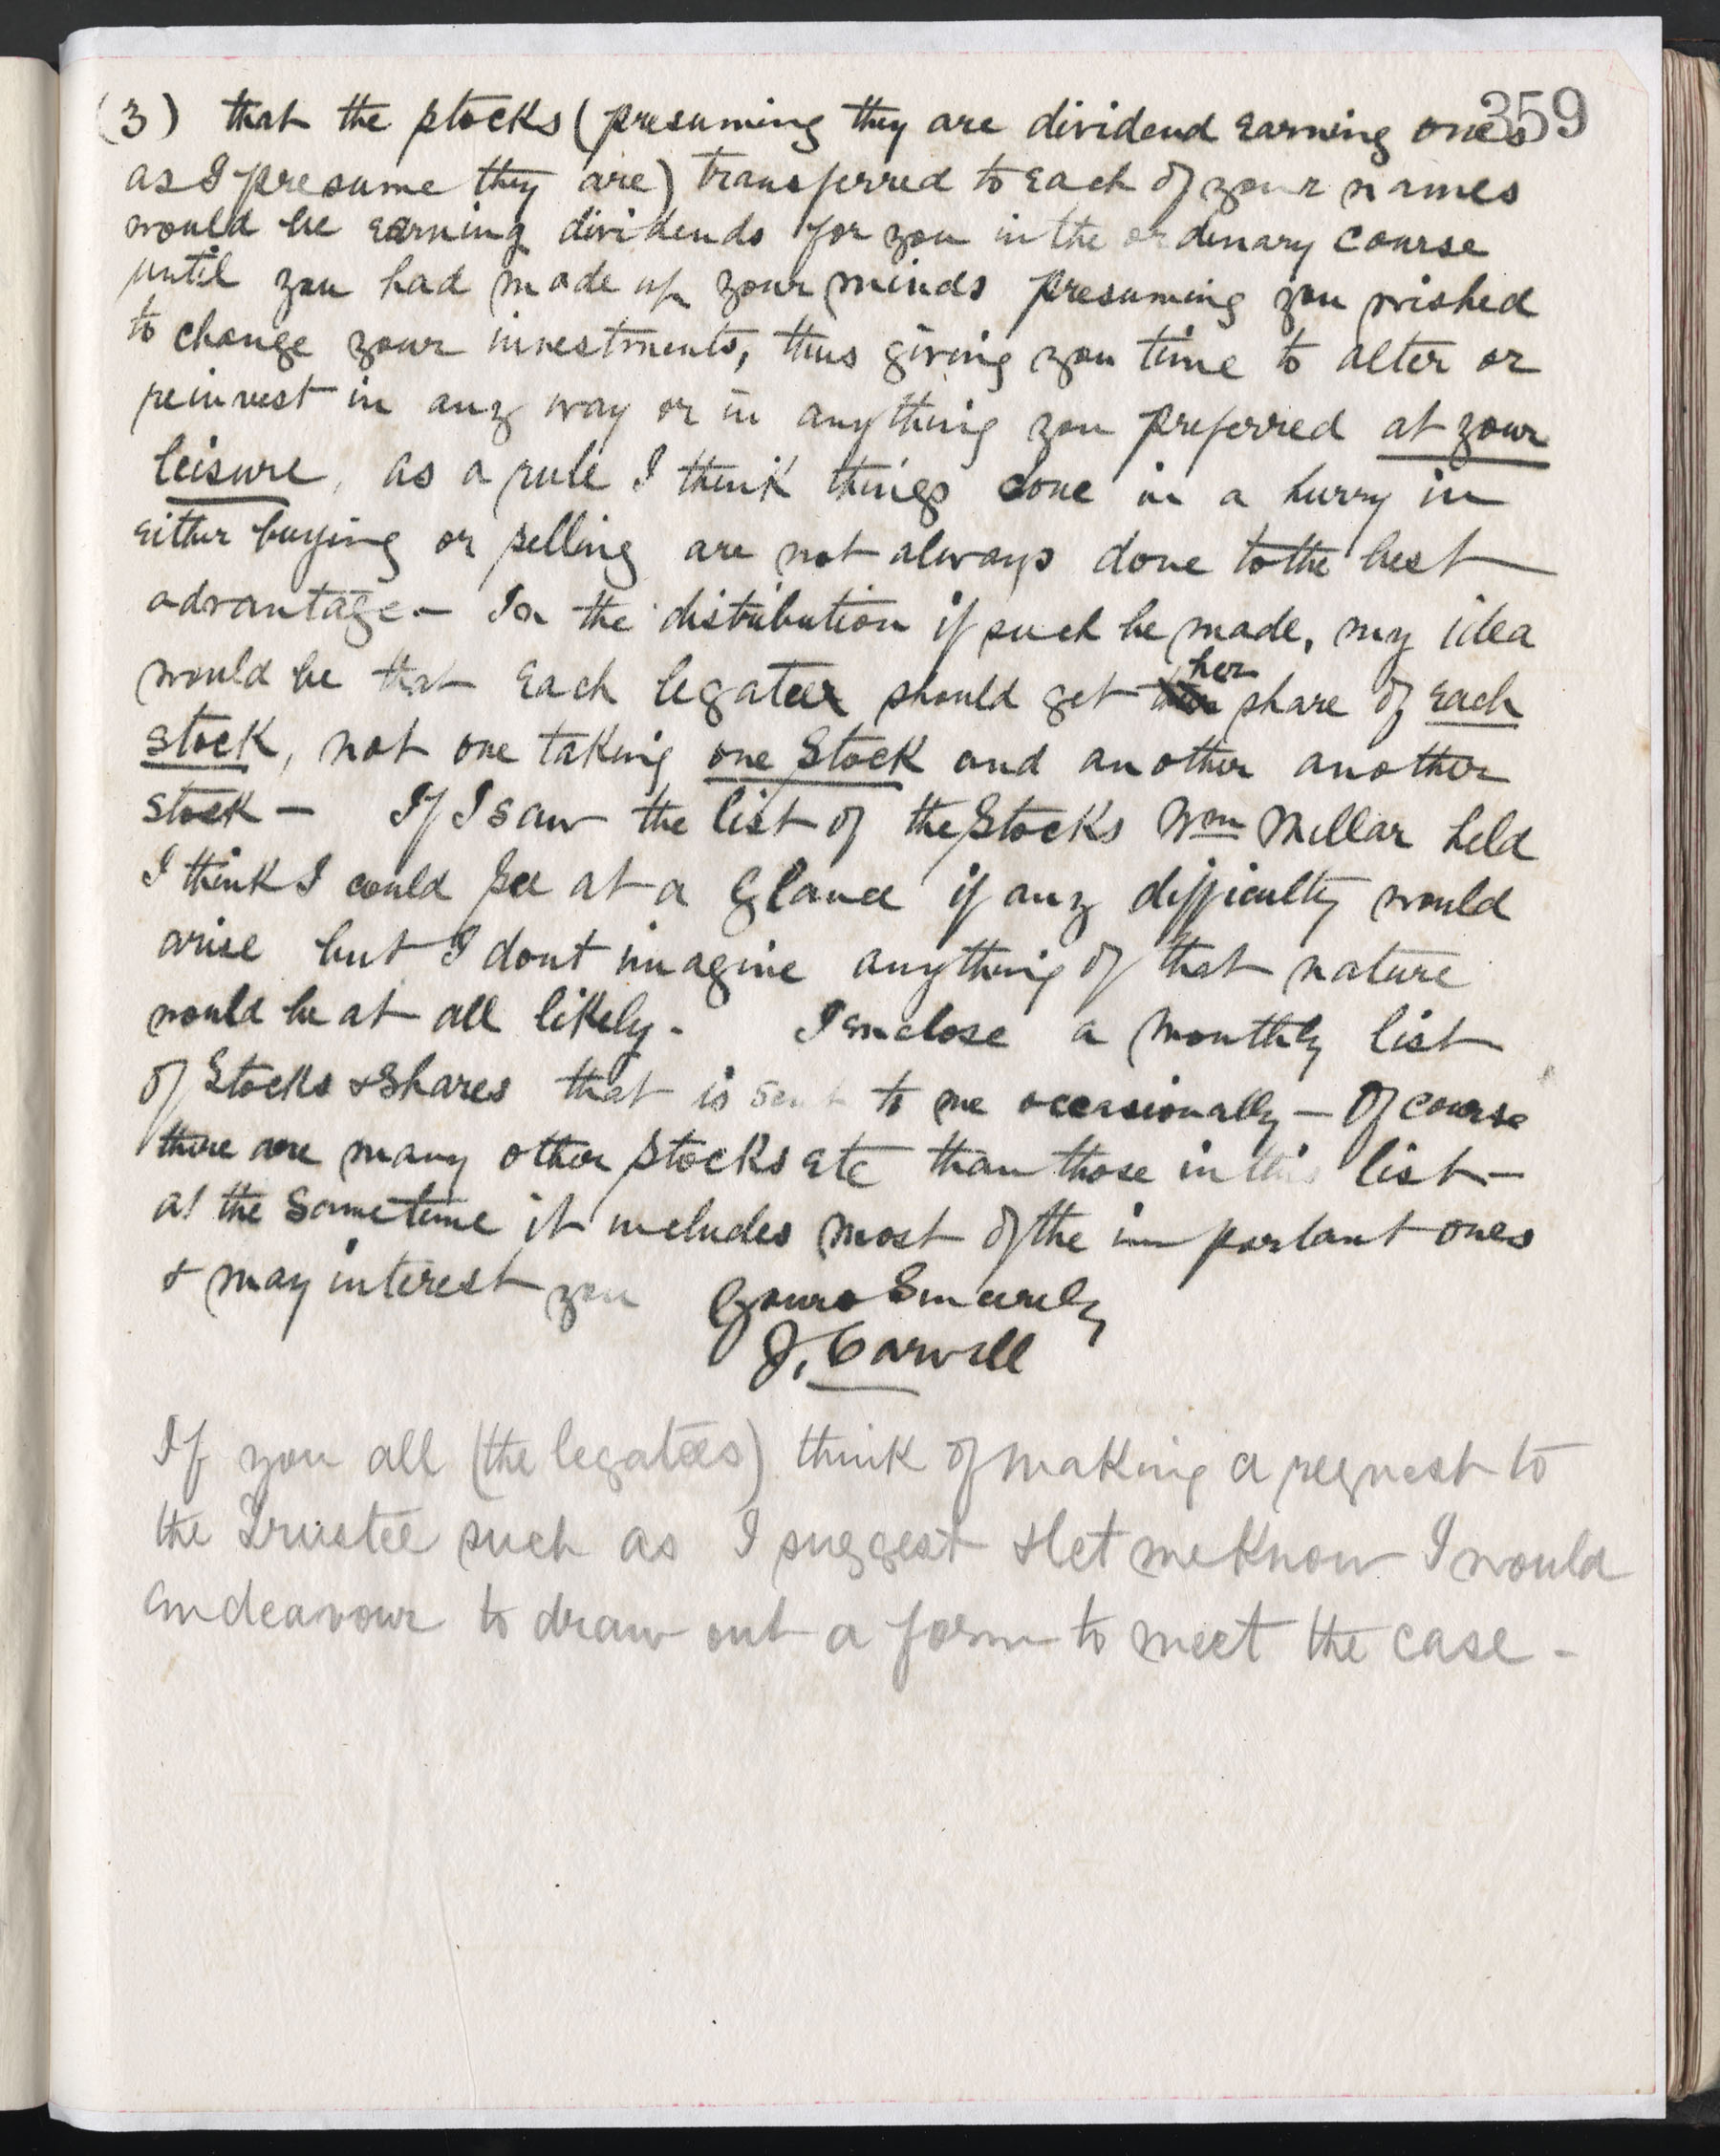 359
(3) that the stocks (presuming they are dividend earning ones
as I presume they are) transferred to each of your names
would be earning dividends for you in the ordinary course
until you had made up your minds presuming you wished
to change your investments, thus giving you time to alter or
reinvest in any way or in anything you preferred at your
leisure, as a rule I think things done in a hurry in
either buying or selling are not always done to the best
advantage – In the distribution if such be made, my idea
would be that each legatee should get her share of each
stock, not one taking one stock and another another
stock – If I saw the list of the Stocks Wm Millar held
I think I could see at a glance if any difficulty would
arise but I dont imagine anything of that nature
would be at all likely. I enclose a monthly list
of Stocks & Shares that is sent to me occasionally – Of course
there are many other stocks etc than those in this list –
at the sametime it includes most of the important ones
& may interest you Yours Sincerely
J. Carvill
If you all (the legatees) think of making a request to
the Trustee such as I suggest & let me know I would
endeavour to draw out a form to meet the case –